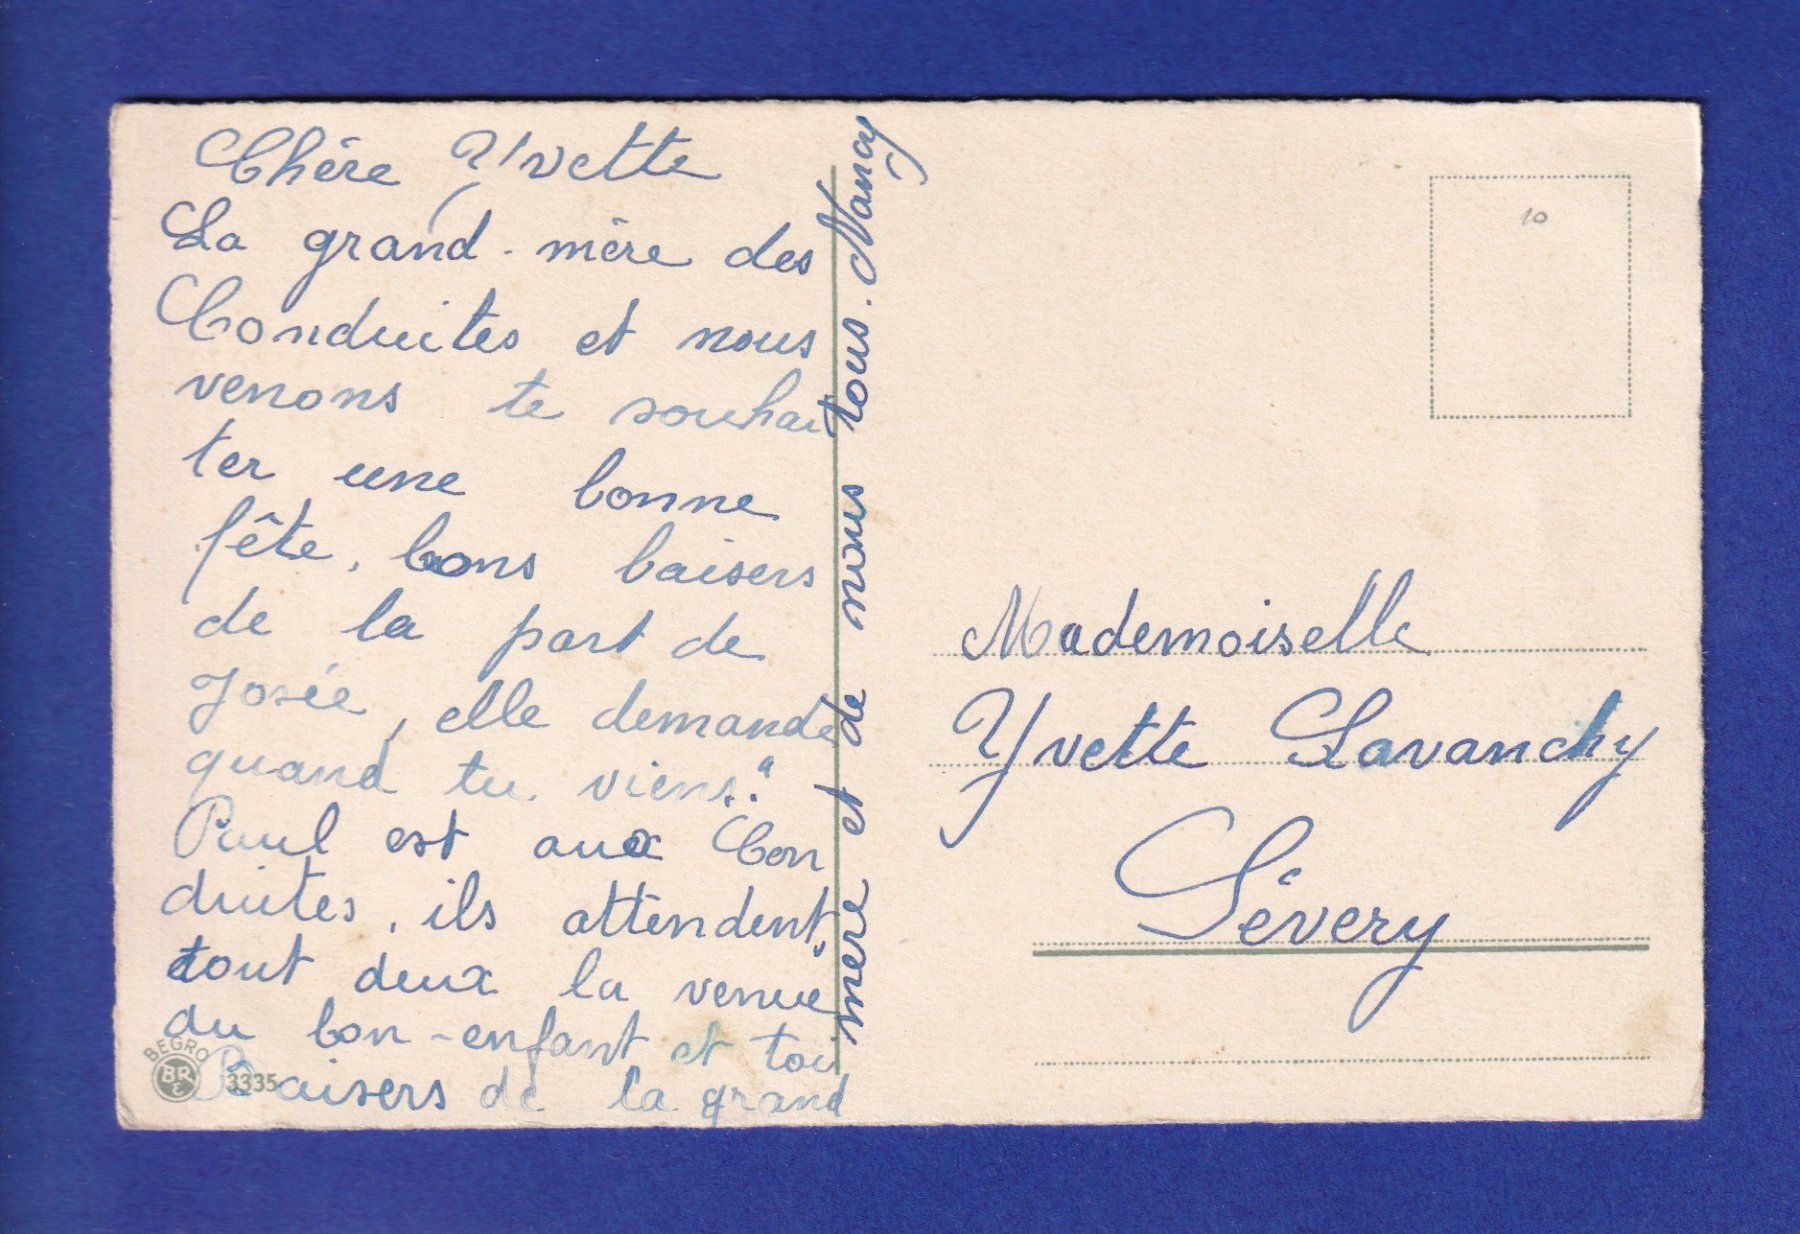 Chère Yvette
La grand-mère des
Conduites et nous
venons te souhai
ter une bonne
fête, bons baisers
de la part de
Josée, elle demande
quand tu viens."
Paul est aux Con
duites, ils attendent,
tout deux la venue
du bon-enfant et toi
Baisers de la grand
mère et de nous tous. Nancy
BEGRO
BR
3335
10
Mademoiselle
Yvette Lavanchy
Sévery